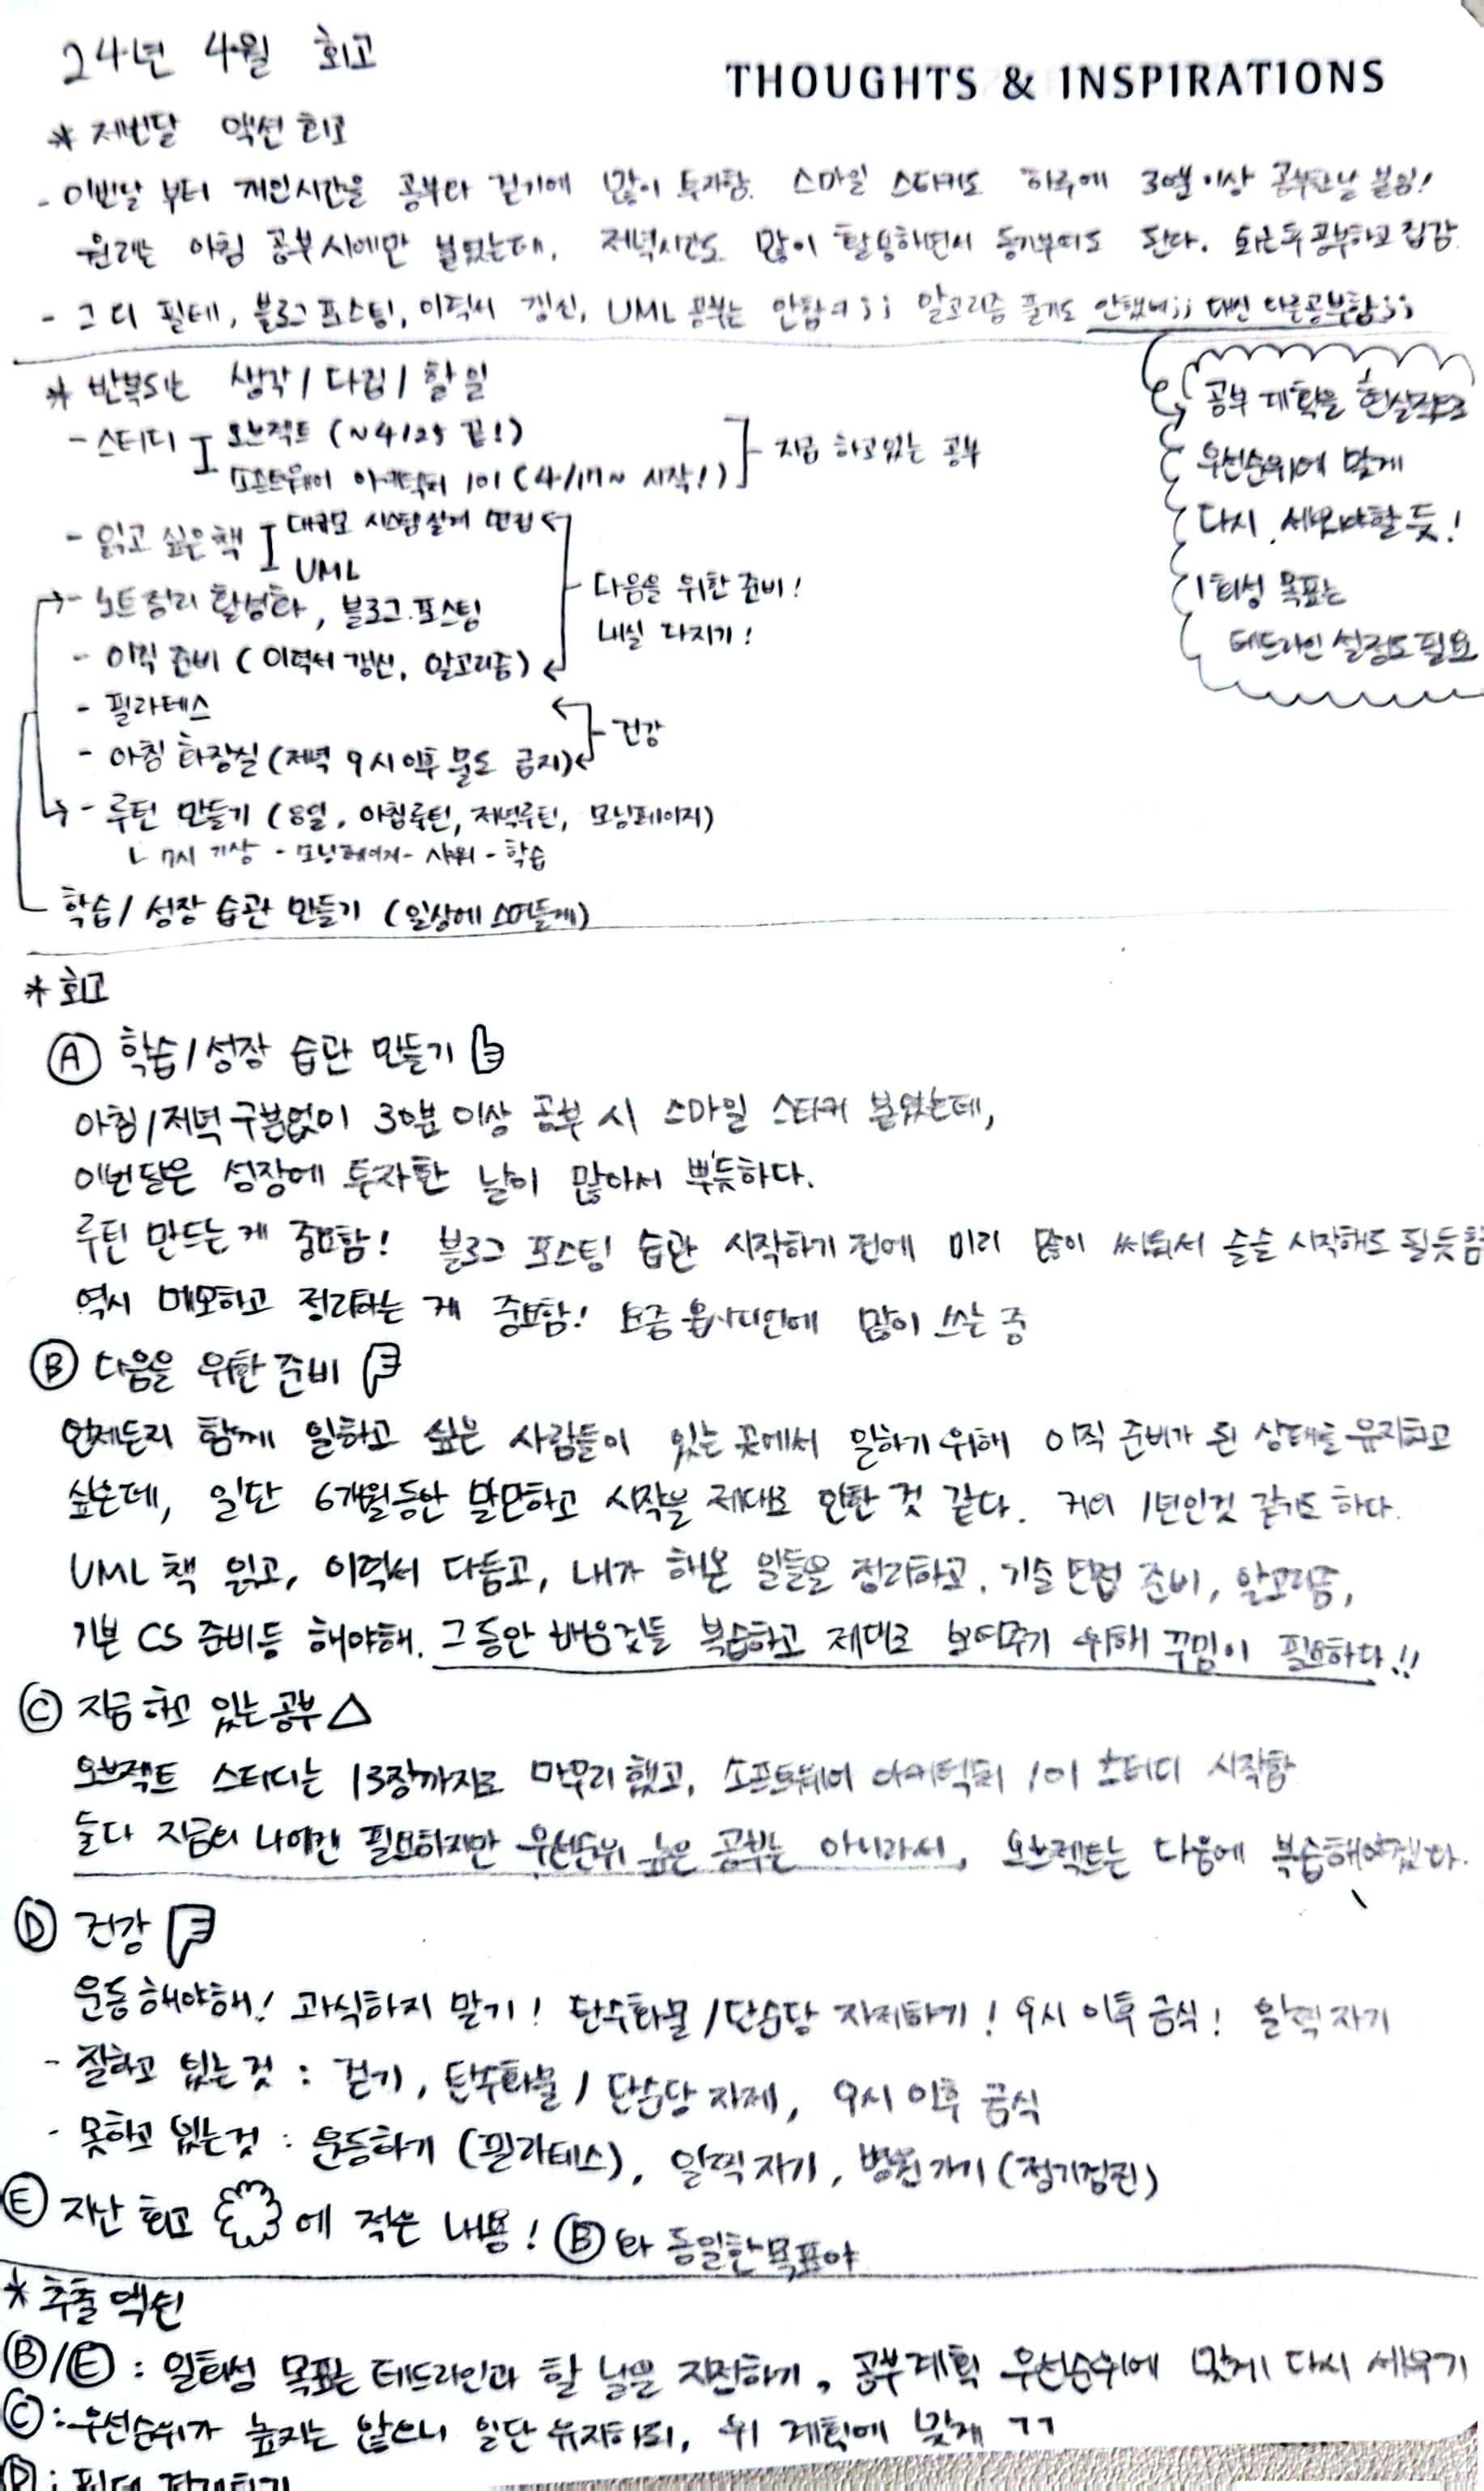 24년 4월 회고
THOUGHTS & INSPIRATIONS
* 저번달 액션 회고
- 이번달 부터 개인시간을 공부랑 걷기에 많이 투자함. 스마일 스티커도 하루에 30분 이상 공부한날 붙임!
원래는 아침 공부시에만 붙였는데, 저녁시간도 많이 활용하면서 동기부여도 된다. 퇴근후 공부하고 집감.
- 그 외 필테, 블로그 포스팅, 이력서 갱신, UML 공부는 안함ㅋ;; 알고리즘 풀기도 안했네;; 대신 다른공부함;;
공부 계획을 현실적으로
우선순위에 맞게
다시 세워야할 듯!
1회성 목표는
데드라인 설정도 필요
* 반복되는 생각/다짐/할일
- 스터디 오브젝트 (~4/25 끝!)
소프트웨어 아키텍처 101 (4/17~ 시작!)
지금 하고있는 공부
- 읽고 싶은 책 대규모 시스템 설계 면접
UML
- 노트정리 활성화, 블로그 포스팅
다음을 위한 준비!
내실 다지기!
- 이직 준비 (이력서 갱신, 알고리즘)
- 필라테스
- 아침 화장실 (저녁 9시 이후 물도 금지)
건강
- 루틴 만들기 (8일, 아침루틴, 저녁루틴, 모닝페이지)
ㄴ 7시 기상 - 모닝페이지 - 샤워 - 학습
학습/성장 습관 만들기 (일상에 스며들게)
* 회고
Ⓐ 학습/성장 습관 만들기
아침/저녁 구분없이 30분 이상 공부 시 스마일 스티커 붙였는데,
이번달은 성장에 투자한 날이 많아서 뿌듯하다.
루틴 만드는 게 중요함! 블로그 포스팅 습관 시작하기 전에 미리 많이 써둬서 슬슬 시작해도 될듯함
역시 메모하고 정리하는 게 중요함! 요즘 옵시디언에 많이 쓰는 중
Ⓑ 다음을 위한 준비
언제든지 함께 일하고 싶은 사람들이 있는 곳에서 일하기 위해 이직 준비가 된 상태를 유지하고
싶은데, 일단 6개월동안 말만하고 시작을 제대로 안한 것 같다. 거의 1년인것 같기도 하다.
UML 책 읽고, 이력서 다듬고, 내가 해온 일들을 정리하고, 기술 면접 준비, 알고리즘,
기본 CS 준비등 해야해. 그동안 배운것들 복습하고 제대로 보여주기 위해 꾸밈이 필요하다!!
Ⓒ 지금 하고 있는 공부 △
오브젝트 스터디는 13장까지로 마무리 했고, 소프트웨어 아키텍처 101 스터디 시작함
둘다 지금의 나에겐 필요하지만 우선순위 높은 공부는 아니라서, 오브젝트는 다음에 복습해야겠다.
Ⓓ 건강
운동 해야해! 과식하지 말기! 탄수화물/단순당 자제하기! 9시 이후 금식! 일찍 자기
- 잘하고 있는 것 : 걷기, 탄수화물/단순당 자제, 9시 이후 금식
- 못하고 있는것 : 운동하기 (필라테스), 일찍 자기, 병원 가기 (정기검진)
Ⓔ 지난 회고 에 적은 내용! Ⓑ와 동일한 목표야
* 추출 액션
Ⓑ/Ⓔ : 일회성 목표는 데드라인과 할 날을 지정하기, 공부계획 우선순위에 맞게 다시 세우기
Ⓒ : 우선순위가 높지는 않으니 일단 유지하되, 위 계획에 맞게 ㄱㄱ
Ⓓ :